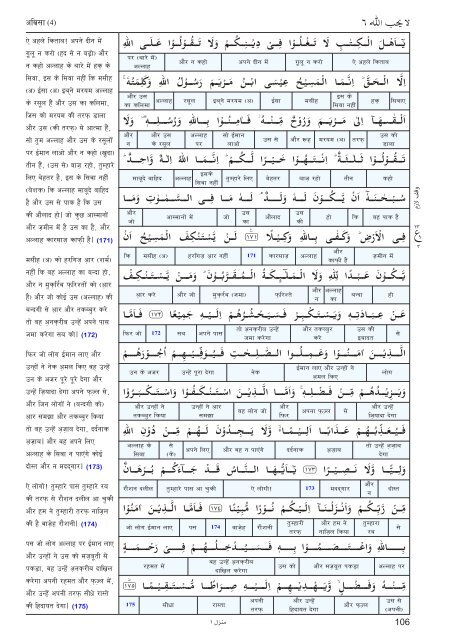 अंनिसा (4)
لا يحب الله ٦
ऐ अहले किताब! अपने दीन में
गुलू न करो (हद से न बढ़ो) और
न कहो अल्लाह के बारे में हक़ के
सिवा, इस के सिवा नहीं कि मसीह
(अ) ईसा (अ) इब्ने मरयम अल्लाह
के रसूल हैं और उस का कलिमा,
जिस को मरयम की तरफ़ डाला
और उस (की तरफ़) से आत्मा हैं,
सो तुम अल्लाह और उस के रसूलों
पर ईमान लाओ और न कहो (खुदा)
तीन हैं, (उस से) बाज़ रहो, तुम्हारे
लिए बेहतर है, इस के सिवा नहीं
(बेशक) कि अल्लाह माबूदे वाहिद
है और उस से पाक है कि उस
की औलाद हो। जो कुछ आस्मानों
और ज़मीन में है उस का है, और
अल्लाह कारसाज़ काफ़ी है। (171)
मसीह (अ) को हरगिज़ आर (शर्म)
नहीं कि वह अल्लाह का बन्दा हो,
और न मुक़र्रिब फ़रिश्तों को (आर
है) और जो कोई उस (अल्लाह) की
बन्दगी से आर और तकब्बुर करे
तो वह अनक़रीब उन्हें अपने पास
जमा करेगा सब को। (172)
फिर जो लोग ईमान लाए और
उन्हों ने नेक अमल किए वह उन्हें
उन के अजर पूरे पूरे देगा और
उन्हें ज़ियादा देगा अपने फ़ज़्ल से,
और जिन लोगों ने (बन्दगी को)
आर समझा और तकब्बुर किया
तो वह उन्हें अज़ाब देगा, दर्दनाक
अज़ाब। और वह अपने लिए
अल्लाह के सिवा न पाएंगे कोई
दोस्त और न मददगार। (173)
ऐ लोगो! तुम्हारे पास तुम्हारे रब
की तरफ़ से रौशन दलील आ चुकी
और हम ने तुम्हारी तरफ़ नाज़िल
की है वाज़ेह रौशनी। (174)
पस जो लोग अल्लाह पर ईमान लाए
और उन्हों ने उस को मज़बूती से
पकड़ा, वह उन्हें अनक़रीब दाख़िल
करेगा अपनी रहमत और फ़ज़्ल में,
और उन्हें अपनी तरफ़ सीधे रास्ते
की हिदायत देगा। (175)
يٰٓاَهْلَ الْكِتٰبِ لَا تَغْلُوْا فِىْ دِيْنِكُمْ وَلَا تَقُوْلُوْا عَلَى اللّٰهِ
पर (बारे में) अल्लाह | और न कहो | अपने दीन में | गुलू न करो | ऐ अहले किताब
اِلَّا الْحَقَّ ؕ اِنَّمَا الْمَسِيْحُ عِيْسَى ابْنُ مَرْيَمَ رَسُوْلُ اللّٰهِ وَكَلِمَتُهٗ ۚ
और उस का कलिमा | अल्लाह | रसूल | इब्ने मरयम (अ) | ईसा | मसीह | इस के सिवा नहीं | हक़ | सिवाए
اَلْقٰىهَاۤ اِلٰى مَرْيَمَ وَرُوْحٌ مِّنْهُ ؗ فَاٰمِنُوْا بِاللّٰهِ وَرُسُلِهٖ ۚ وَلَا
और न | और उस के रसूल | अल्लाह पर | सो ईमान लाओ | उस से | और रूह | मरयम (अ) | तरफ़ | उस को डाला
تَقُوْلُوْا ثَلٰثَةٌ ؕ اِنْتَهُوْا خَيْرًا لَّكُمْ ؕ اِنَّمَا اللّٰهُ اِلٰهٌ وَّاحِدٌ ؕ
माबूदे वाहिद | अल्लाह | इसके सिवा नहीं | तुम्हारे लिए | बेहतर | बाज़ रहो | तीन | कहो
سُبْحٰنَهٗۤ اَنْ يَّكُوْنَ لَهٗ وَلَدٌ ۘ لَهٗ مَا فِى السَّمٰوٰتِ وَمَا
और जो | आस्मानों में | जो | उस का | औलाद | उस की | हो | कि | वह पाक है
فِى الْاَرْضِ ؕ وَكَفٰى بِاللّٰهِ وَكِيْلًا ﴿۱۷۱﴾ لَنْ يَّسْتَنْكِفَ الْمَسِيْحُ اَنْ
कि | मसीह (अ) | हरगिज़ आर नहीं | 171 | कारसाज़ | अल्लाह | और काफ़ी है | ज़मीन में
يَّكُوْنَ عَبْدًا لِّلّٰهِ وَلَا الْمَلٰٓئِكَةُ الْمُقَرَّبُوْنَ ؕ وَمَنْ يَّسْتَنْكِفْ
आर करे | और जो | मुक़र्रिब (जमा) | फ़रिश्ते | और न | अल्लाह का | बन्दा | हो
عَنْ عِبَادَتِهٖ وَيَسْتَكْبِرْ فَسَيَحْشُرُهُمْ اِلَيْهِ جَمِيْعًا ﴿۱۷۲﴾ فَاَمَّا
फिर जो | 172 | सब | अपने पास | तो अनक़रीब उन्हें जमा करेगा | और तकब्बुर करे | उस की इबादत | से
الَّذِيْنَ اٰمَنُوْا وَعَمِلُوا الصّٰلِحٰتِ فَيُوَفِّيْهِمْ اُجُوْرَهُمْ
उन के अजर | उन्हें पूरा देगा | नेक | ईमान लाए और उन्हों ने अमल किए | लोग
وَيَزِيْدُهُمْ مِّنْ فَضْلِهٖ ۚ وَاَمَّا الَّذِيْنَ اسْتَنْكَفُوْا وَاسْتَكْبَرُوْا
और उन्हों ने तकब्बुर किया | उन्हों ने आर समझा | वह लोग जो | और फिर | अपना फ़ज़्ल | से | और उन्हें ज़ियादा देगा
فَيُعَذِّبُهُمْ عَذَابًا اَلِيْمًا ۙ وَّلَا يَجِدُوْنَ لَهُمْ مِّنْ دُوْنِ اللّٰهِ
अल्लाह के सिवा | से (के) | अपने लिए | और वह न पाएंगे | दर्दनाक | अज़ाब | तो उन्हें अज़ाब देगा
وَلِيًّا وَّلَا نَصِيْرًا ﴿۱۷۳﴾ يٰۤاَيُّهَا النَّاسُ قَدْ جَآءَكُمْ بُرْهَانٌ
रौशन दलील | तुम्हारे पास आ चुकी | ऐ लोगो! | 173 | मददगार | और न | दोस्त
مِّنْ رَّبِّكُمْ وَاَنْزَلْنَاۤ اِلَيْكُمْ نُوْرًا مُّبِيْنًا ﴿۱۷۴﴾ فَاَمَّا الَّذِيْنَ اٰمَنُوْا
जो लोग ईमान लाए | पस | 174 | वाज़ेह | रौशनी | तुम्हारी तरफ़ | और हम ने नाज़िल किया | तुम्हारा रब | से
بِاللّٰهِ وَاعْتَصَمُوْا بِهٖ فَسَيُدْخِلُهُمْ فِىْ رَحْمَةٍ
रहमत में | वह उन्हें अनक़रीब दाख़िल करेगा | उस को | और मज़बूत पकड़ा | अल्लाह पर
مِّنْهُ وَفَضْلٍ ۙ وَّيَهْدِيْهِمْ اِلَيْهِ صِرَاطًا مُّسْتَقِيْمًا ﴿۱۷۵﴾
175 | सीधा | रास्ता | अपनी तरफ़ | और उन्हें हिदायत देगा | और फ़ज़्ल | उस से (अपनी)
منزل ١
106